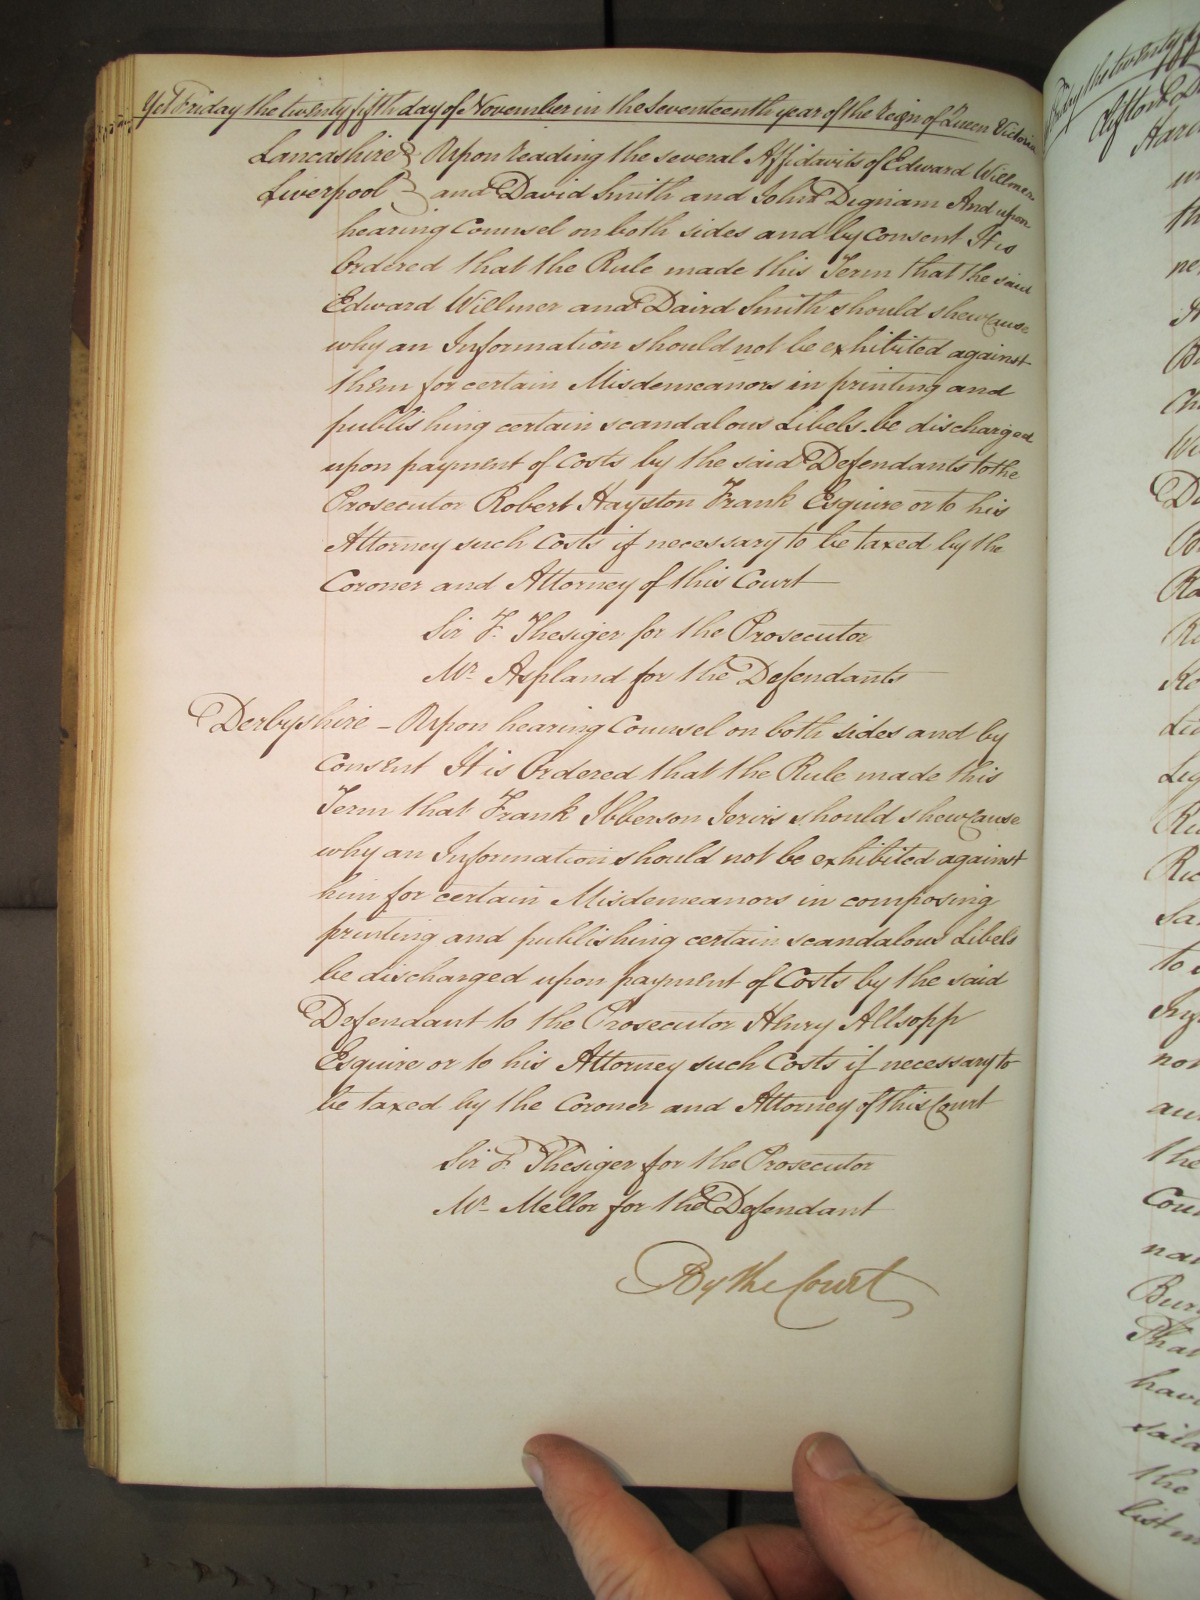 Yet Friday the twenty fifth day of November in the Seventeenth year of the Reign of Queen Victoria
Lancashire } Upon reading the several Affidavits of Edward Willmer
Liverpool } and David Smith and John Dignam And upon
hearing Counsel on both sides and by Consent It is
Ordered that the Rule made this Term that the said
Edward Willmer and Daird Smith should shew Cause
why an Information should not be exhibited against
them for certain Misdemeanors in printing and
publishing certain scandalous Libels be discharged
upon payment of Costs by the said Defendants to the
Prosecutor Robert Hayston Frank Esquire or to his
Attorney such Costs if necessary to be taxed by the
Coroner and Attorney of this Court
Sir F. Thesiger for the Prosecutor
Mr. Aspland for the Defendants
Derbyshire - Upon hearing Counsel on both sides and by
Consent It is Ordered that the Rule made this
Term that Frank Ibberson Jervis should shew Cause
why an Information should not be exhibited against
him for certain Misdemeanors in composing
printing and publishing certain scandalous Libels
be discharged upon payment of Costs by the said
Defendant to the Prosecutor Henry Allsopp
Esquire or to his Attorney such Costs if necessary to
be taxed by the Coroner and Attorney of this Court
Sir F. Thesiger for the Prosecutor
Mr. Mellor for the Defendant
By the Court